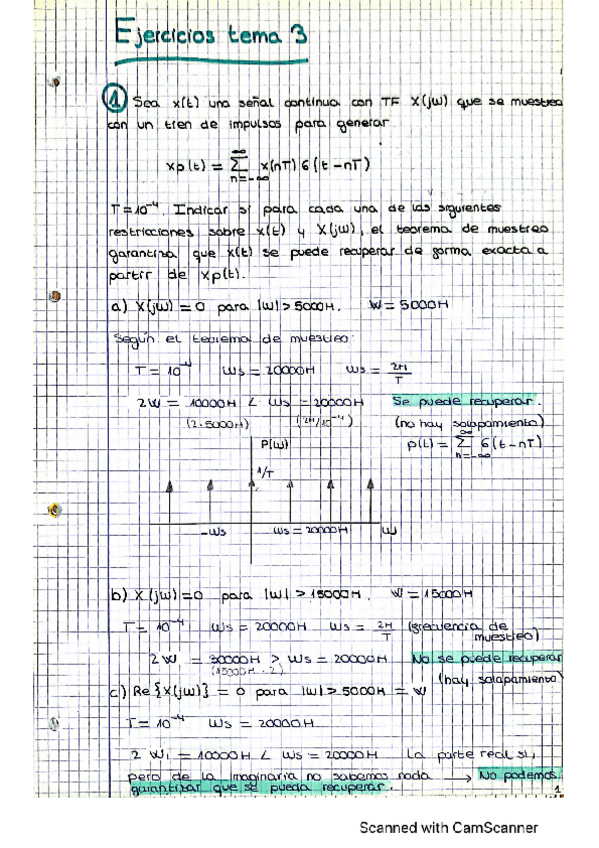 Ejercicios tema 3
1 Sea x(t) una señal continua con TF X(jω) que se muestrea
con un tren de impulsos para generar
xp(t) = ∑ x(nT) δ(t-nT)
n=-∞ ∞
T=10⁻⁴. Indicar si para cada una de las siguientes
restricciones sobre x(t) y X(jω), el teorema de muestreo
garantiza que x(t) se puede recuperar de forma exacta a
partir de xp(t).
a) X(jω) = 0 para |ω| > 5000π. W = 5000π
Según el teorema de muestreo:
T = 10⁻⁴ ωs = 20000π ωs = 2π/T
2W = 10000π < ωs = 20000π Se puede recuperar.
(2·5000π) (2π/10⁻⁴) (no hay solapamiento)
P(ω) p(t) = ∑ δ(t-nT)
n=-∞ ∞
1/T
-ωs ωs = 20000π ω
b) X(jω) = 0 para |ω| > 15000π. W = 15000π
T = 10⁻⁴ ωs = 20000π ωs = 2π/T (frecuencia de
muestreo)
2W = 30000π > ωs = 20000π No se puede recuperar
(15000π · 2) (hay solapamiento)
c) Re{X(jω)} = 0 para |ω| > 5000π = W
T = 10⁻⁴ ωs = 20000π
2 W₁ = 10000π < ωs = 20000π La parte real sí,
pero de la imaginaria no sabemos nada → No podemos
garantizar que se pueda recuperar.
1
Scanned with CamScanner